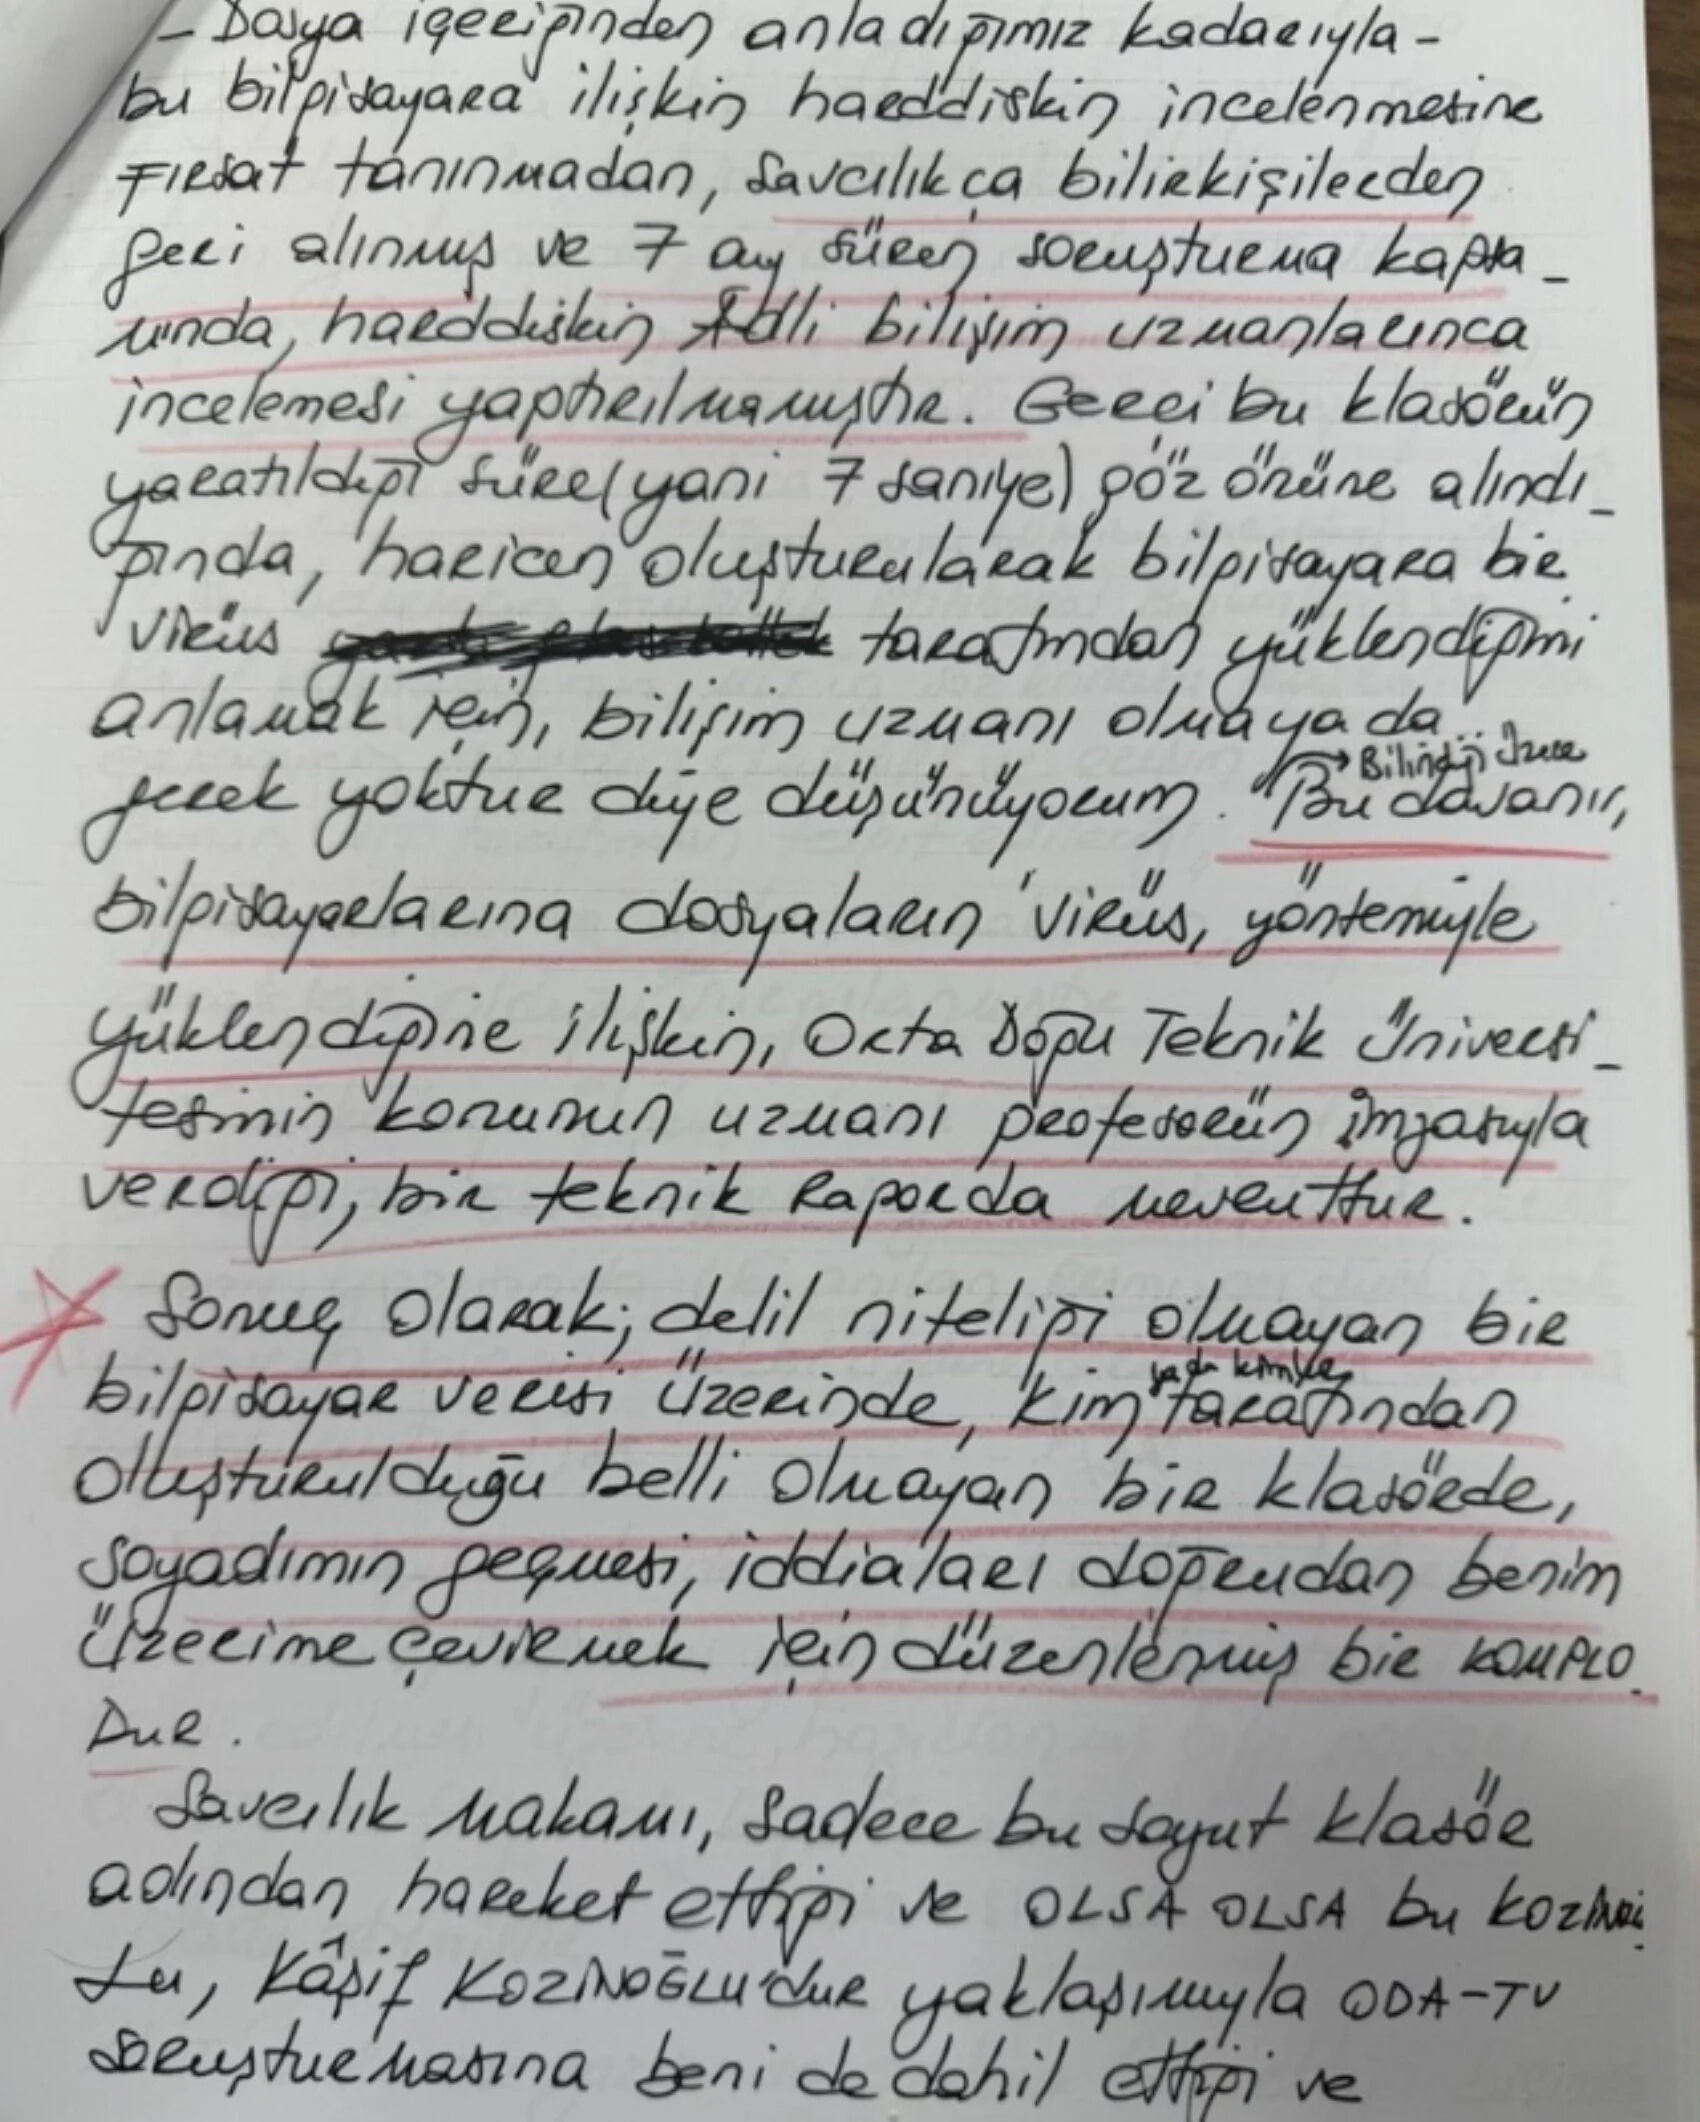 - Dosya içeriğinden anladığımız kadarıyla -
bu bilgisayara ilişkin harddiskin incelenmesine
fırsat tanınmadan, savcılıkça bilirkişilerden
geri alınmış ve 7 ay süren soruşturma kapsa-
mında, harddiskin Adli bilişim uzmanlarınca
incelemesi yaptırılmamıştır. Gerçi bu klasörün
yaratıldığı süre (yani 7 saniye) göz önüne alındı-
ğında, haricen oluşturularak bilgisayara bir
virüs tarafından yüklendiğini
anlamak için, bilişim uzmanı olmaya da..
gerek yoktur diye düşünüyorum. Bu davanın,
Bilindiği üzere
bilgisayarlarına dosyaların 'virüs, yöntemiyle
yüklendiğine ilişkin, Orta Doğu Teknik Üniversi-
tesinin konunun uzmanı profesörün imzasıyla
verdiği, bir teknik raporda mevcuttur.
Sonuç olarak; delil niteliği olmayan bir
bilgisayar verisi üzerinde, kim tarafından
ya da kimler
oluşturulduğu belli olmayan bir klasörde,
soyadımın geçmesi, iddiaları doğrudan benim
üzerime çevirmek için düzenlenmiş bir KOMPLO
DUR.
Savcılık makamı, sadece bu soyut klasör
adından hareket ettiği ve OLSA OLSA bu
Lu, Kâşif KOZİNOĞLU'dur yaklaşımıyla ODA-TV
soruşturmasına beni de dahil ettiği ve